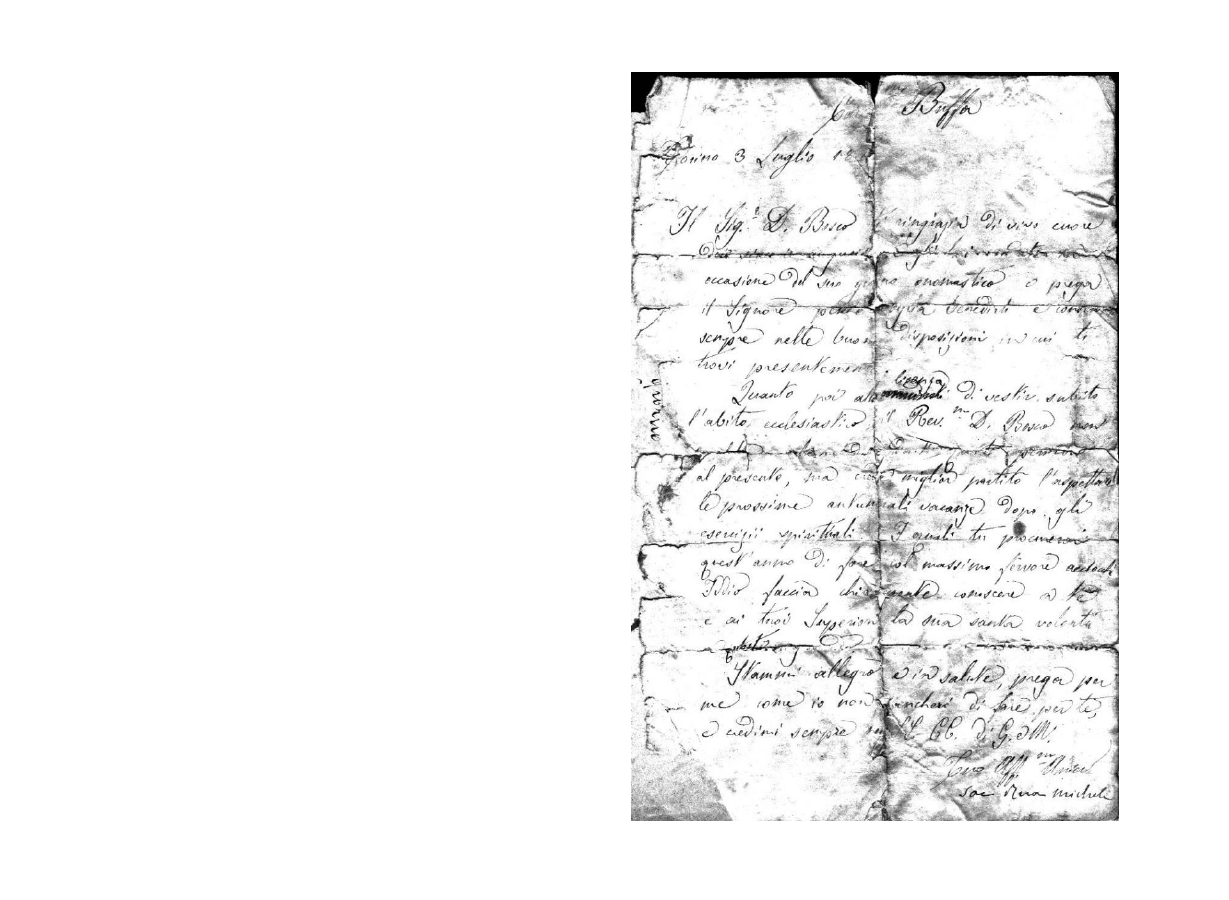 Buffa
Torino 3 Luglio
Il Sig.r D. Bosco ringrazia di vivo cuore
occasione del suo giorno onomastico e prega
il Signore benedirti e
sempre nelle buone disposizioni in cui ti
trovi presentemente
licenza
Quanto poi alla di vestir subito
l'abito ecclesiastico, il Rev.mo D. Bosco non
al presente, ma crede miglior partito l'aspettare
le prossime autunnali vacanze dopo gli
esercizii spirituali. I quali tu procurerai
quest'anno di fare col massimo fervore acciocché
Iddio faccia chiaramente conoscere a te
e ai tuoi Superiori la sua santa volontà
Stammi allegro e in salute, prega per
me come io non mancherò di fare per te,
e credimi sempre CC. di G. e M.
Tuo Aff.mo
Sac Rua Michele